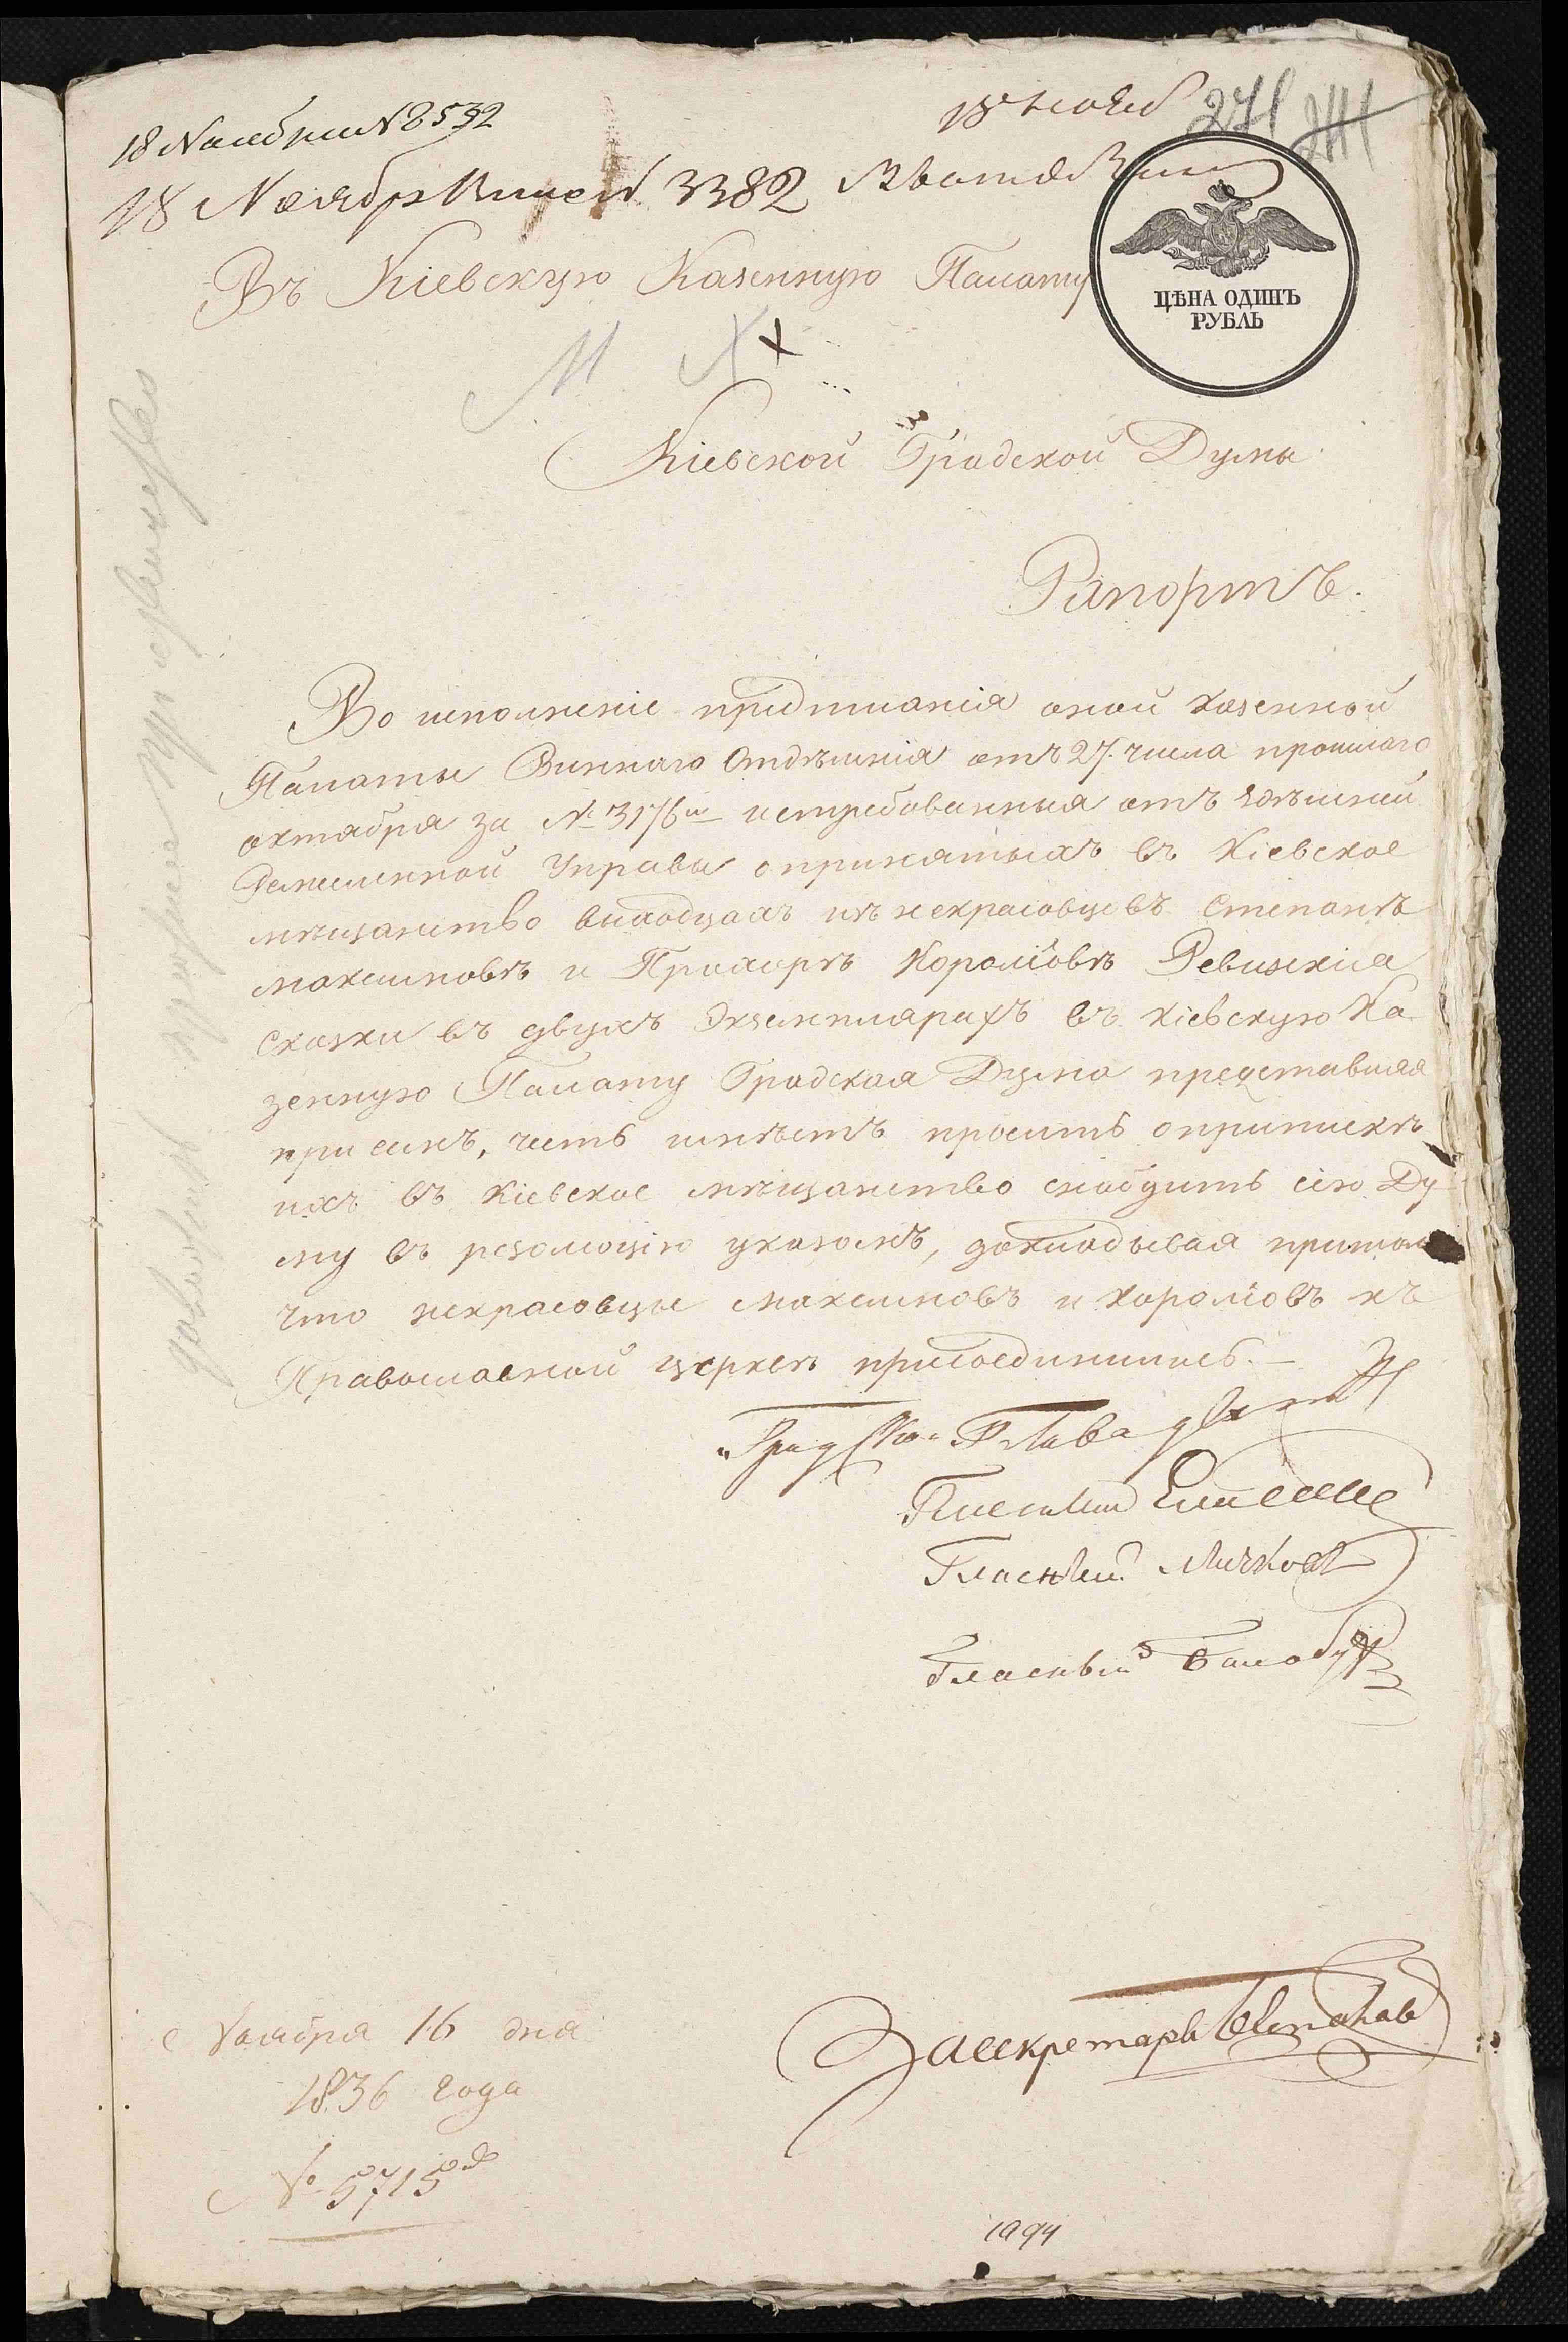 18 Ноября № 8532
18 Нояб 271
18 Ноября 3382
Въ Кіевскую Казенную Палату
ЦѢНА ОДИНЪ
РУБЛЬ
Кіевской Градской Думы
Рапортъ.
Во исполненіе предписанія оной казенной
Палаты Виннаго Отдѣленія отъ 27. числа прошлаго
октября за № 3176м истребованныя отъ здѣшней
Ремесленной Управы о принятыхъ въ Кіевское
мѣщанство выходцахъ изъ некрасовцевъ Степанѣ
максимовѣ и Прохорѣ Королiовѣ Ревизскія
сказки въ двухъ Экземплярахъ въ Кіевскую Ка
зенную Палату Градская Дума представляя
при семъ, честь имѣетъ просить о припискѣ
ихъ въ Кіевское мѣщанство снабдить сію Ду
му въ резолюцію указомъ, докладывая притомъ
что некрасовцы максимовъ и королiовъ къ
Православной церквѣ присоединились. —
Градской Глава
Гласный
Гласный Личковъ
Гласный Балабу
За секретаря
Ноября 16 дня
1836 года
№ 5715
1994